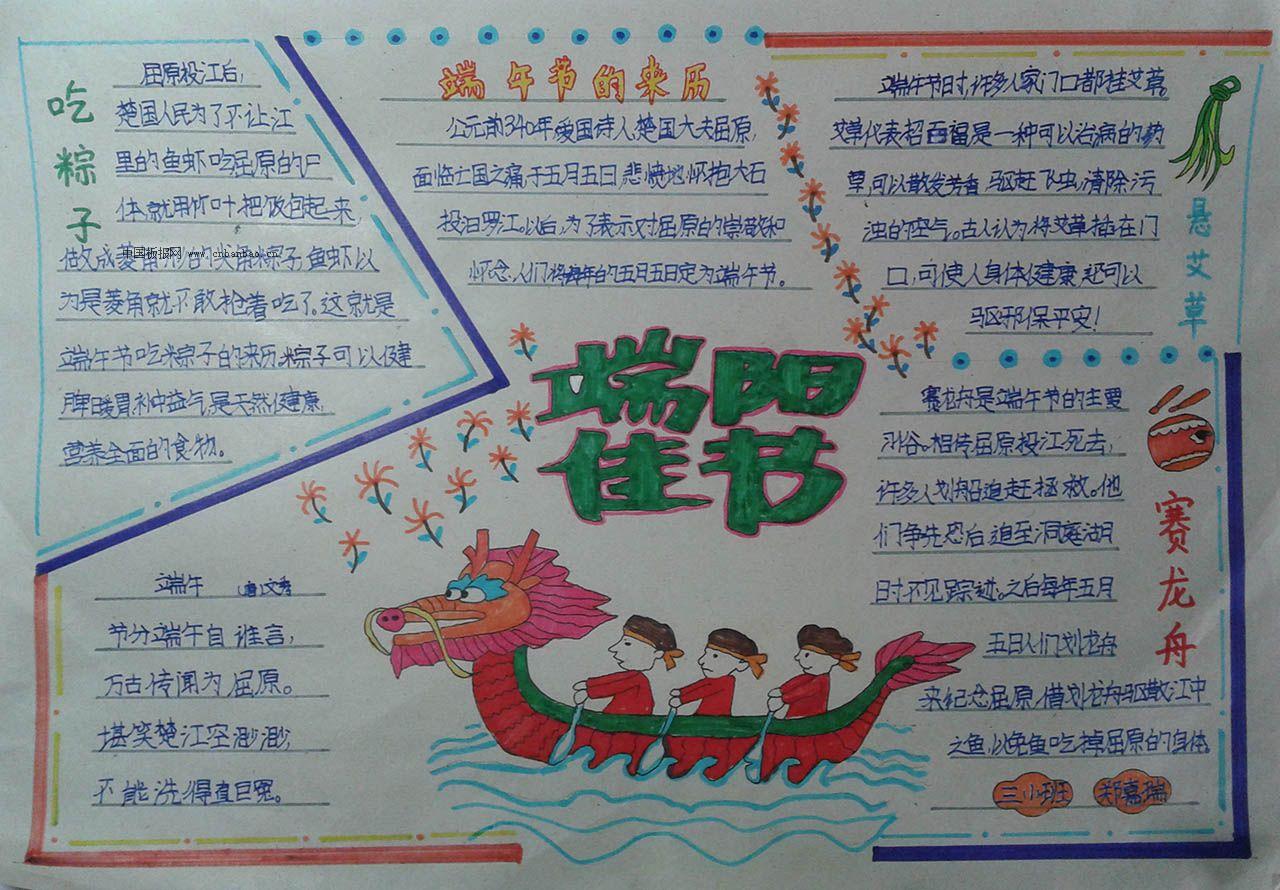 吃粽子
屈原投江后，
楚国人民为了不让江
里的鱼虾吃屈原的尸
体，就用竹叶把饭包起来，
做成菱角形的尖角粽子，鱼虾以
为是菱角就不敢抢着吃了。这就是
端午节吃粽子的来历，粽子可以健
脾暖胃补中益气，是天然健康
营养全面的食物。
中国板报网 www.cnbanbao.cn
端午节的来历
公元前340年爱国诗人楚国大夫屈原，
面临亡国之痛于五月五日，悲愤地怀抱大石
投汨罗江。以后，为了表示对屈原的崇敬和
怀念，人们将每年的五月五日定为端午节。
端午节时，许多人家门口都挂艾草。
艾草代表招百福是一种可以治病的药
草，可以散发芳香，驱赶飞虫，清除污
浊的空气。古人认为将艾草插在门
口，可使人身体健康，还可以
驱邪保平安！
悬艾草
端阳
佳节
端午 （唐）文秀
节分端午自谁言，
万古传闻为屈原。
堪笑楚江空渺渺，
不能洗得直臣冤。
赛龙舟是端午节的主要
习俗。相传屈原投江死去，
许多人划船追赶拯救。他
们争先恐后，追至洞庭湖
时不见踪迹。之后每年五月
五日人们划龙舟
来纪念屈原，借划龙舟驱散江中
之鱼，以免鱼吃掉屈原的身体。
赛龙舟
三小班 郑嘉瑞